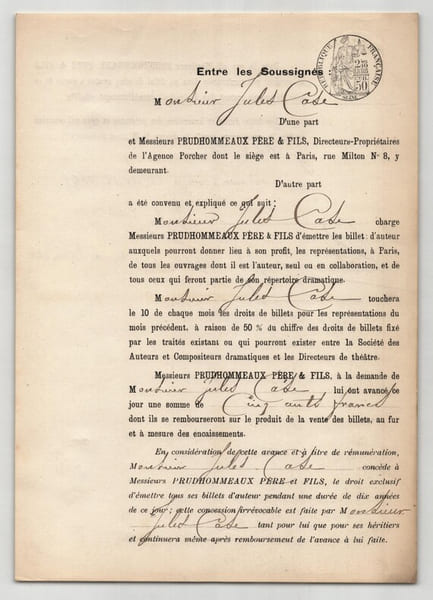 Entre les Soussignés :
RÉPUBLIQUE FRANÇAISE
50
Monsieur Jules Case
D'une part
et Messieurs PRUDHOMMEAUX PÈRE & FILS, Directeurs-Propriétaires
de l'Agence Porcher dont le siège est à Paris, rue Milton No 8, y
demeurant.
D'autre part
a été convenu et expliqué ce qui suit :
Monsieur Jules Case charge
Messieurs PRUDHOMMEAUX PÈRE & FILS d'émettre les billets d'auteur
auxquels pourront donner lieu à son profit, les représentations, à Paris,
de tous les ouvrages dont il est l'auteur, seul ou en collaboration, et de
tous ceux qui feront partie de son répertoire dramatique.
Monsieur Jules Case touchera
le 10 de chaque mois les droits de billets pour les représentations du
mois précédent. à raison de 50 % du chiffre des droits de billets fixé
par les traités existant ou qui pourront exister entre la Société des
Auteurs et Compositeurs dramatiques et les Directeurs de théâtre.
Messieurs PRUDHOMMEAUX PÈRE & FILS, à la demande de
Monsieur Jules Case lui ont avancé ce
jour une somme de Cinq cents francs
dont ils se rembourseront sur le produit de la vente des billets, au fur
et à mesure des encaissements.
En considération de cette avance et à titre de rémunération,
Monsieur Jules Case concède à
Messieurs PRUDHOMMEAUX PÈRE ET FILS, le droit exclusif
d'émettre tous ses billets d'auteur pendant une durée de dix années
de ce jour ; cette concession irrévocable est faite par Monsieur
Jules Case tant pour lui que pour ses héritiers
et continuera même après remboursement de l'avance à lui faite.